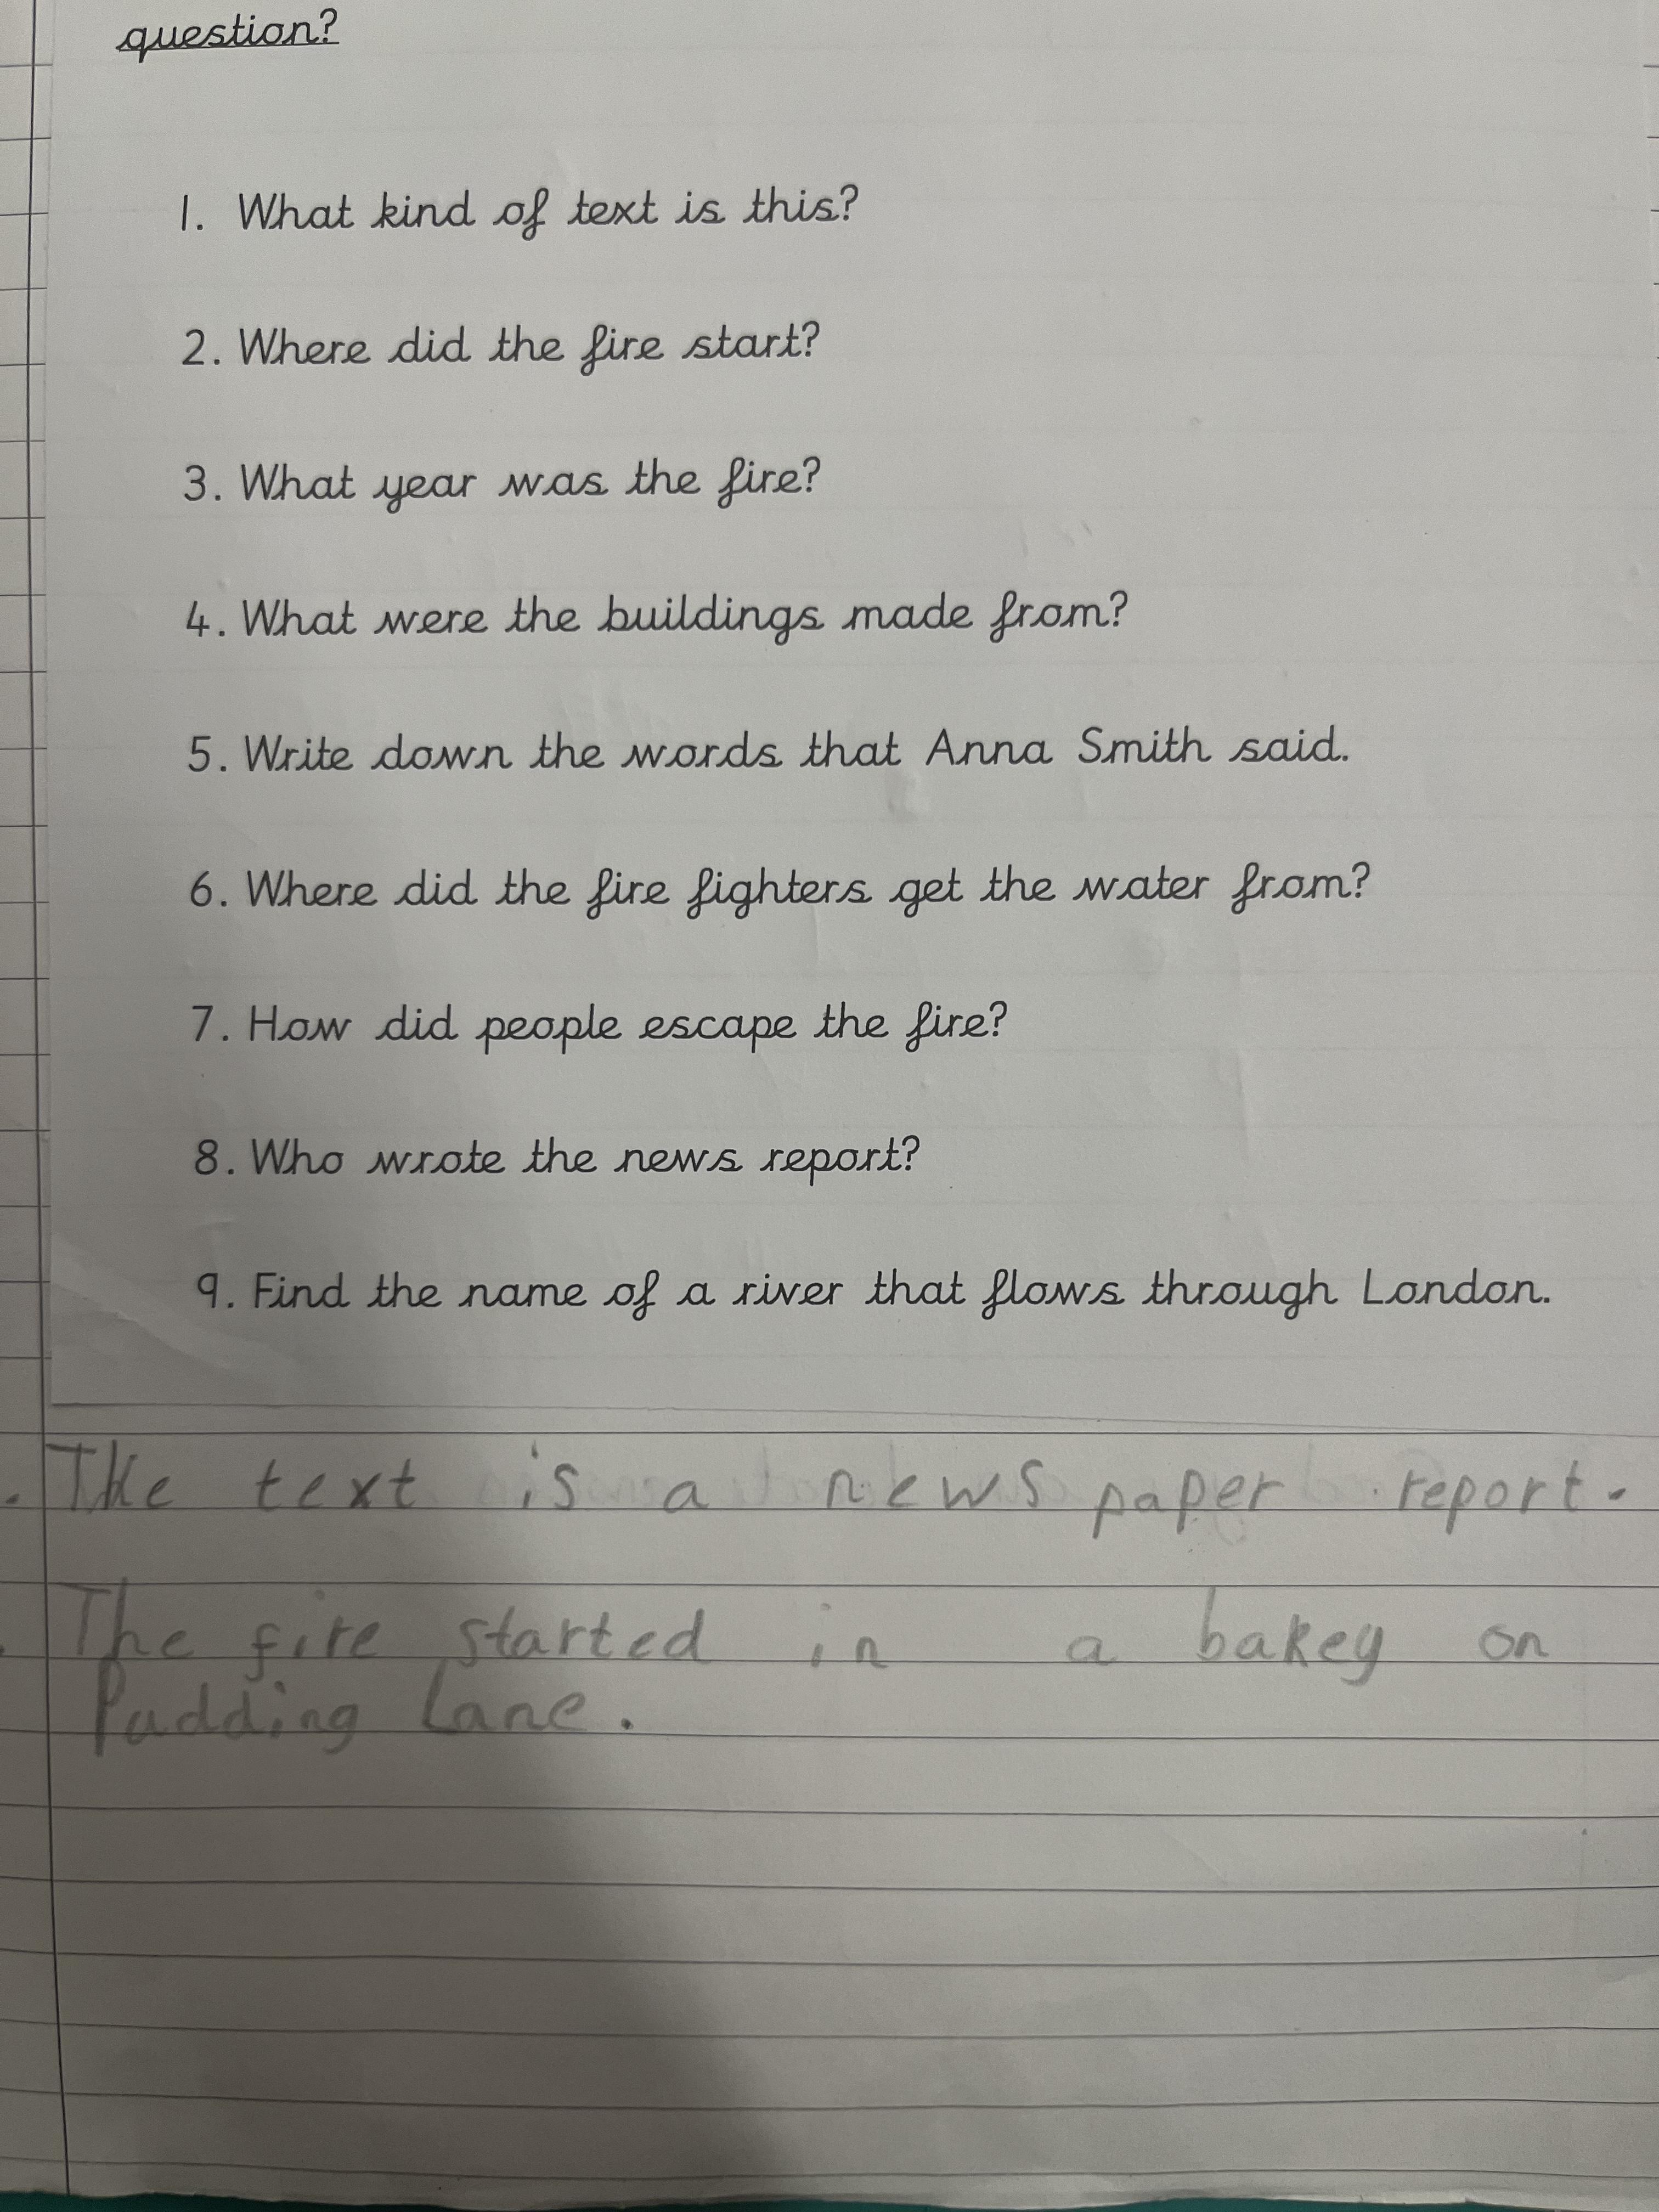 question?
1. What kind of text is this?
2. Where did the fire start?
3. What year was the fire?
4. What were the buildings made from?
5. Write down the words that Anna Smith said.
6. Where did the fire fighters get the water from?
7. How did people escape the fire?
8. Who wrote the news report?
9. Find the name of a river that flows through London.
. The text is a news paper report.
. The fire started in a bakey on
Pudding Lane.